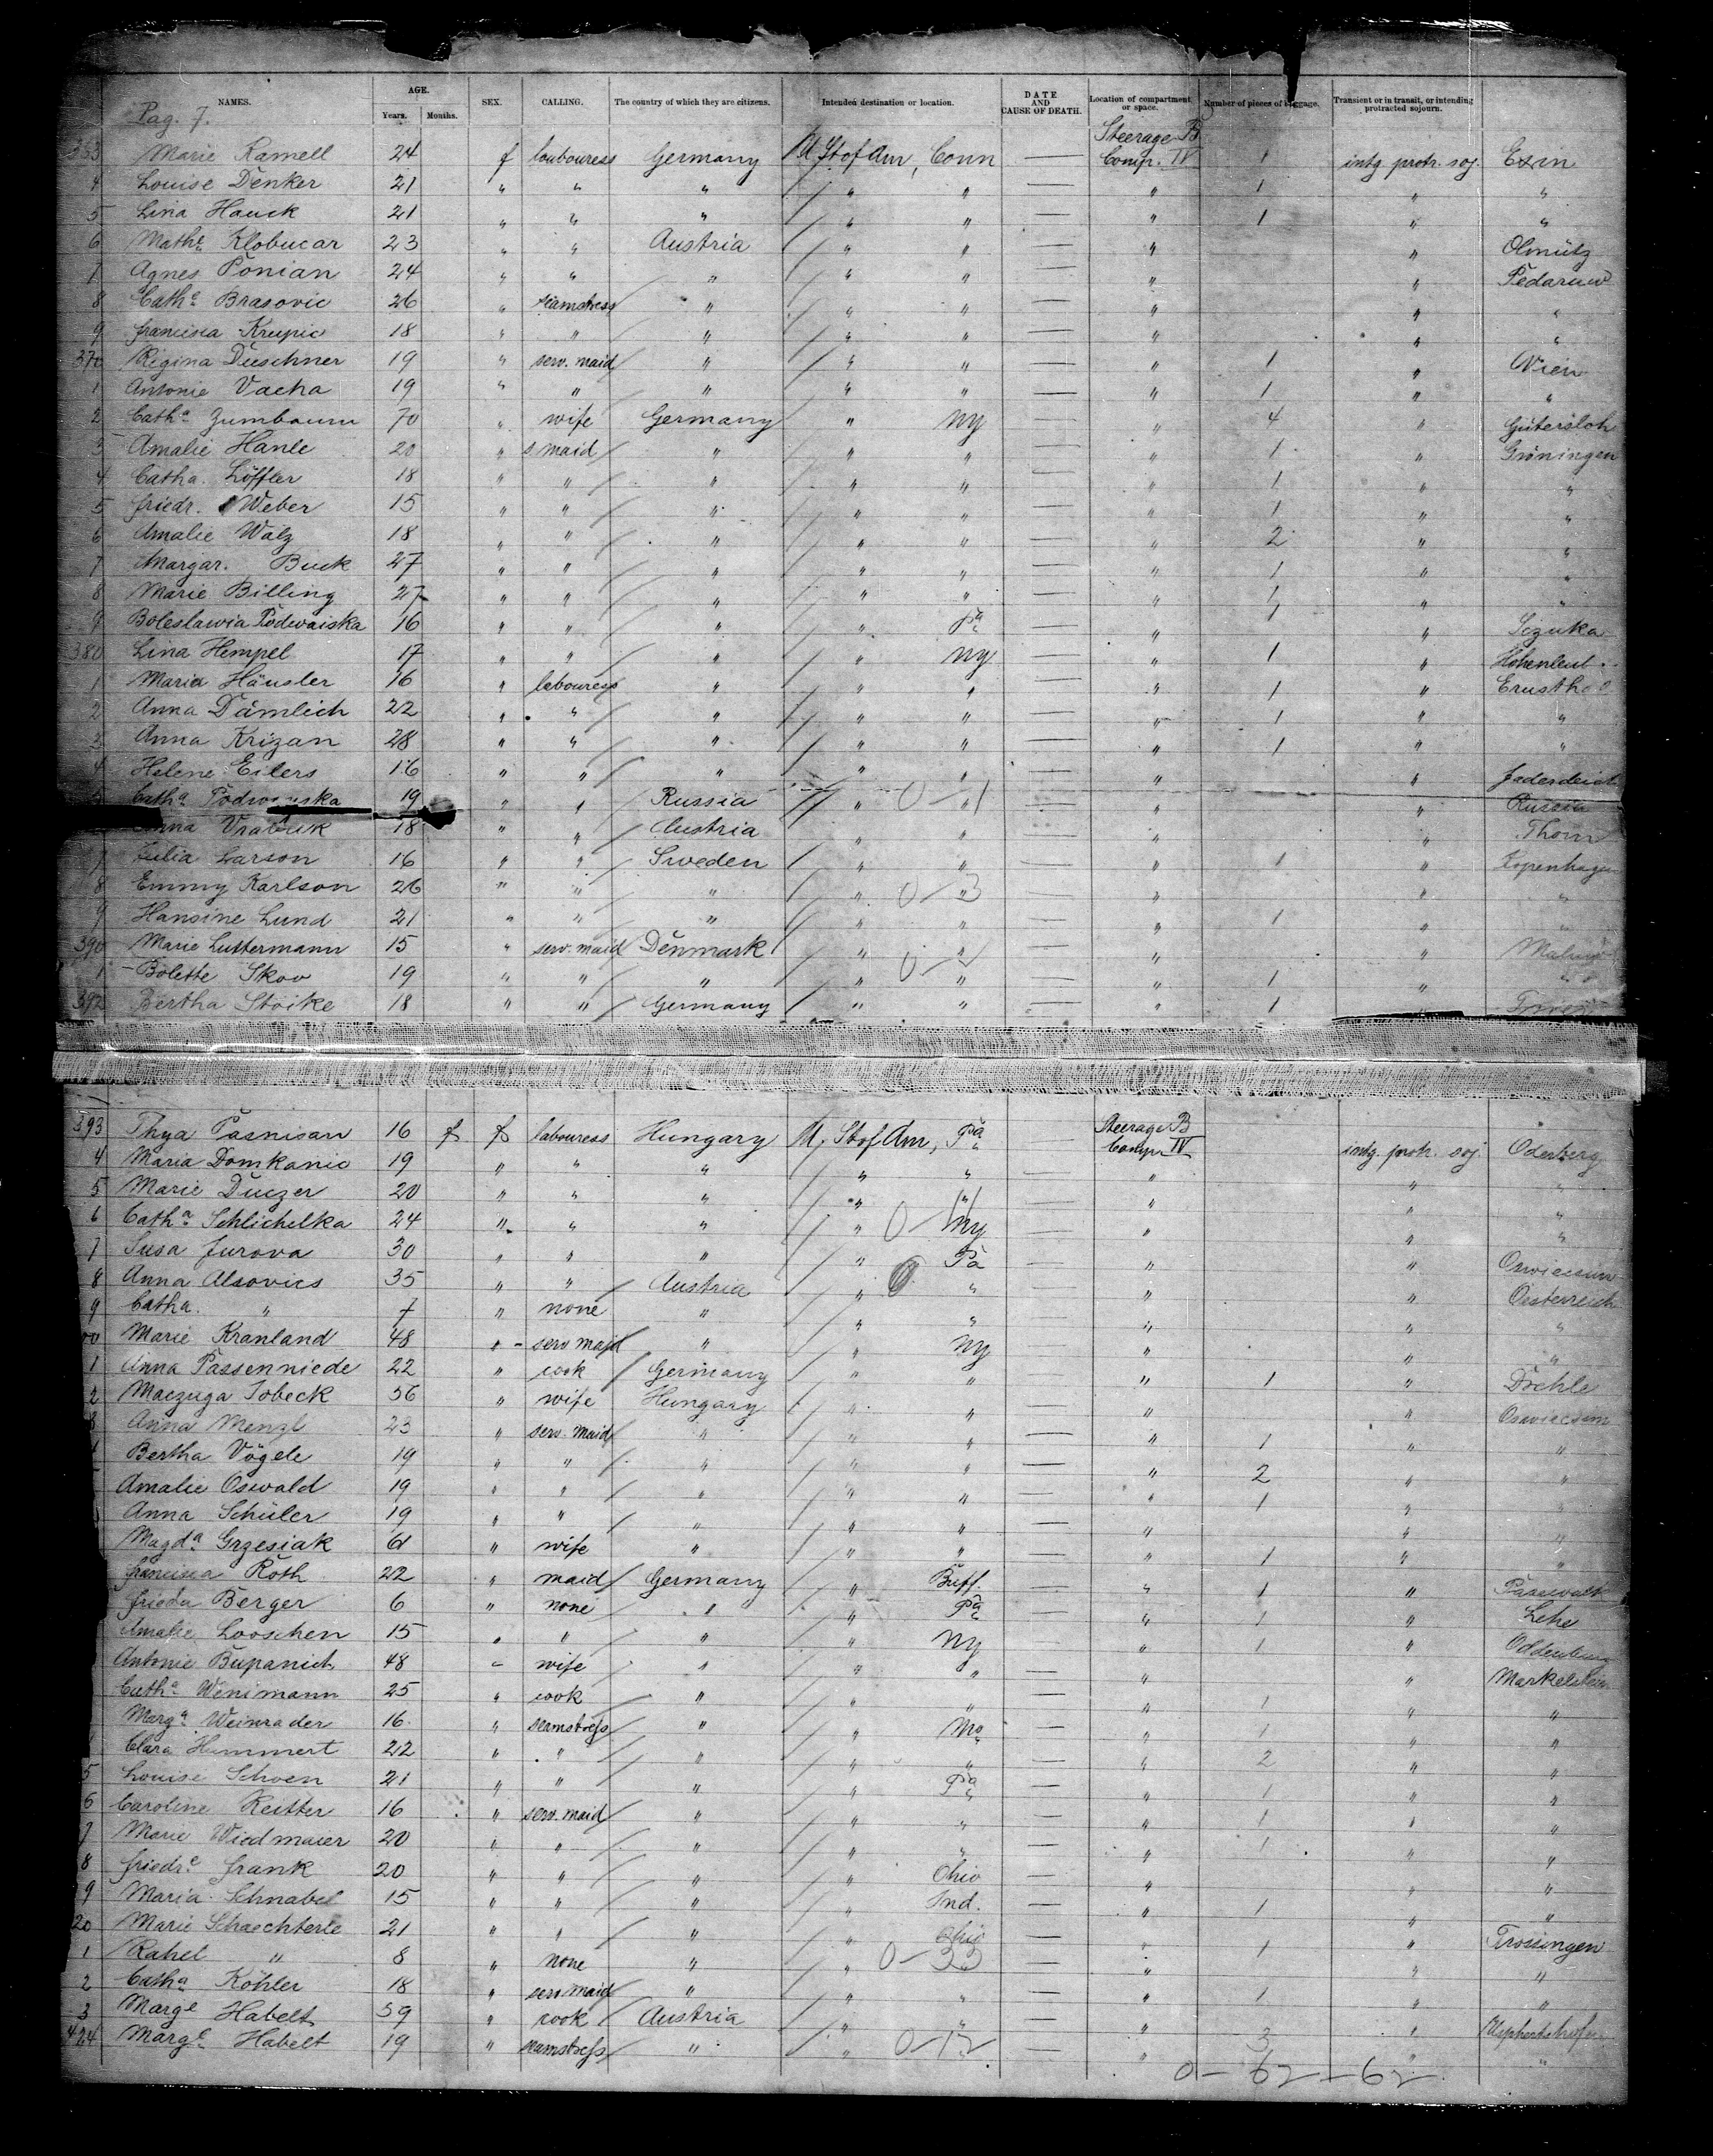 Pag. 7.
NAMES. AGE. Years. Months. SEX. CALLING. The country of which they are citizens. Intended destination or location. DATE AND CAUSE OF DEATH. Location of compartment or space. Number of pieces of baggage. Transient or in transit, or intending protracted sojourn.
Steerage B
363 Marie Ramell 24 f labouress Germany U St of Am, Conn — Comp. IV 1 intg protr. soj. Exin
4 Louise Denker 21 " " " " " — " 1 " "
5 Lina Hauck 21 " " " " " — " 1 " "
6 Mathe Klobucar 23 " " Austria " " — " " Olmütz
7 Agnes Ponian 24 " " " " " — " "
8 Catha Brasovic 26 " seamstress " " " — " " "
9 Francisca Krupic 18 " " " " " — " " "
370 Regina Deuschner 19 " serv. maid " " " — " 1 " Wien
1 Antonie Vacha 19 " " " " " — " 1 " "
2 Catha Zumbaum 70 " wife Germany " NY — " 4 " Gütersloh
3 Amalie Hanle 20 " s. maid " " " — " 1 " Gröningen
4 Catha. Löffler 18 " " " " " — " 1 " "
5 Friedr. Weber 15 " " " " " — " 1 " "
6 Amalie Walz 18 " " " " " — " 2 " "
7 Margar. Buck 27 " " " " " — " 1 " "
8 Marie Billing 27 " " " " " — " 1 " "
9 Boleslawia Podwaiska 16 " " " " Pa — " 1 "
380 Lina Hempel 17 " " " " NY — " 1 "
1 Maria Häusler 16 " labouress " " " — " 1 "
2 Anna Dämlich 22 " " " " " — " 1 " "
3 Anna Krizan 28 " " " " " — " 1 " "
4 Helene Eilers 16 " " " " " — " " Jadesdeich
Catha 19 " " Russia " 0-1 " — " " Russia
Anna 18 " " Austria " " — " " Thorn
7 Julia Larson 16 " " Sweden " " — " 1 " Kopenhagen
8 Emmy Karlson 26 " " " " 0-3 — " " "
9 Hansine Lund 21 " " " " " — " 1 " "
390 Marie Luttermann 15 " serv. maid Denmark " " — " "
1 Bolette Skov 19 " " " " " — " 1 " "
392 Bertha Stoike 18 " " Germany " " — " 1 "
Steerage B
393 Thya Pasnisan 16 f f labouress Hungary U, St of Am, Pa — Comp. IV intg protr. soj Oderberg
4 Maria Domkanic 19 " " " " " — " " "
5 Marie Duczer 20 " " " " " — " " "
6 Catha Schlichelka 24 " " " " NY — " " "
7 Susa Jurova 30 " " " " Pa — " "
8 Anna Alsovics 35 " " Austria " 0 " — " " Oesterreich
9 Catha. " 7 " none " " " — " " "
00 Marie Kranland 48 " serv maid " " NY — " " "
1 Anna Passenniede 22 " cook Germany " " — " 1 " Drehle
2 Maczuga Sobeck 56 " wife Hungary " " — " " Oswiecsim
3 Anna Menzl 23 " serv. maid " " " — " 1 " "
4 Bertha Vögele 19 " " " " " — " 2 " "
Amalie Oswald 19 " " " " " — " 1 " "
Anna Schüler 19 " " " " " — " " "
Magda Grzesiak 61 " wife " " " — " 1 " "
Francisca Roth 22 " maid Germany " Buff. — " 1 " Pasewalk
Frieda Berger 6 " none " " Pa — " 1 " Lehe
Amalie Looschen 15 " " " " NY — " 1 " Oldenburg
Antonie Bupanich 48 " wife " " " — " "
Catha Wenimann 25 " cook " " " — " 1 " "
Marga Weinrader 16 " seamstress " " Mo — " 1 " "
Clara Hummert 22 " " " " " — " 2 " "
5 Louise Schoen 21 " " " " Pa — " 1 " "
6 Caroline Reitter 16 " serv. maid " " " — " 1 " "
7 Marie Wiedmaier 20 " " " " " — " 1 " "
8 Friedre Frank 20 " " " " Ohio — " " "
9 Maria Schnabel 15 " " " " Ind. — " 1 " "
20 Marie Schaechterle 21 " " " " Ohio — " 1 " Trossingen
1 Rahel " 8 " none " " 0-33 — " " "
2 Catha Köhler 18 " serv. maid " " " — " 1 " "
3 Marge Habelt 59 " cook Austria " " — " 3 "
424 Marge Habelt 19 " seamstress " " 0-12 — " " "
0-62-62